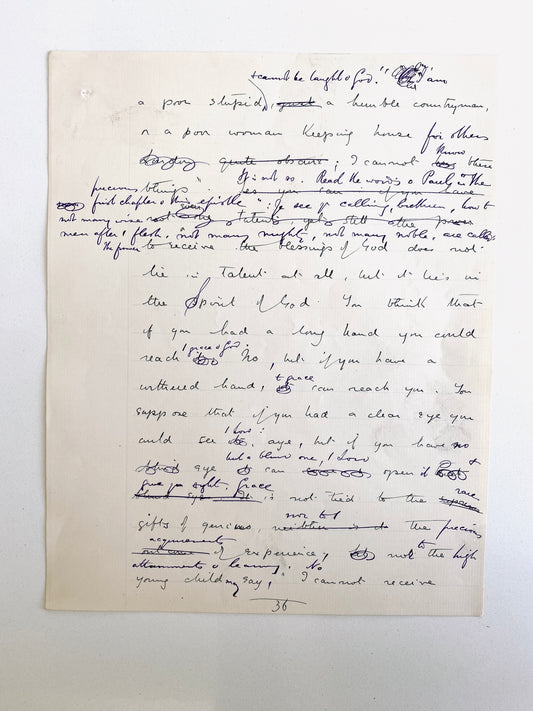 & cannot be taught of God." "I am
a poor stupid, just a humble countryman,
or a poor woman keeping house for others
quite obscure; I cannot know these
precious things". It is not so. Read the words of Paul, in the
yes you can if you have
first chapter of this epistle": Ye see yr calling, brethren, how tt
not many wise talents, yet still the power
men after / flesh, not many mighty, not many noble, are called".
The power to receive the blessings of God does not
lie in talent at all, but it lies in
the Spirit of God. You think that
if you had a long hand you could
reach / grace of God. No, but if you have a
withered hand, tt grace can reach you. You
suppose that if you had a clear eye you
could see / Lord: aye, but if you have no
but a blind one, / Lord
eye can open it &
give you sight. Grace
is not tied to the rare
gifts of genius, nor to / the precious
neither is it
acquirements
of experience, not to the high
attainments of learning. No
young child may say, "I cannot receive
36